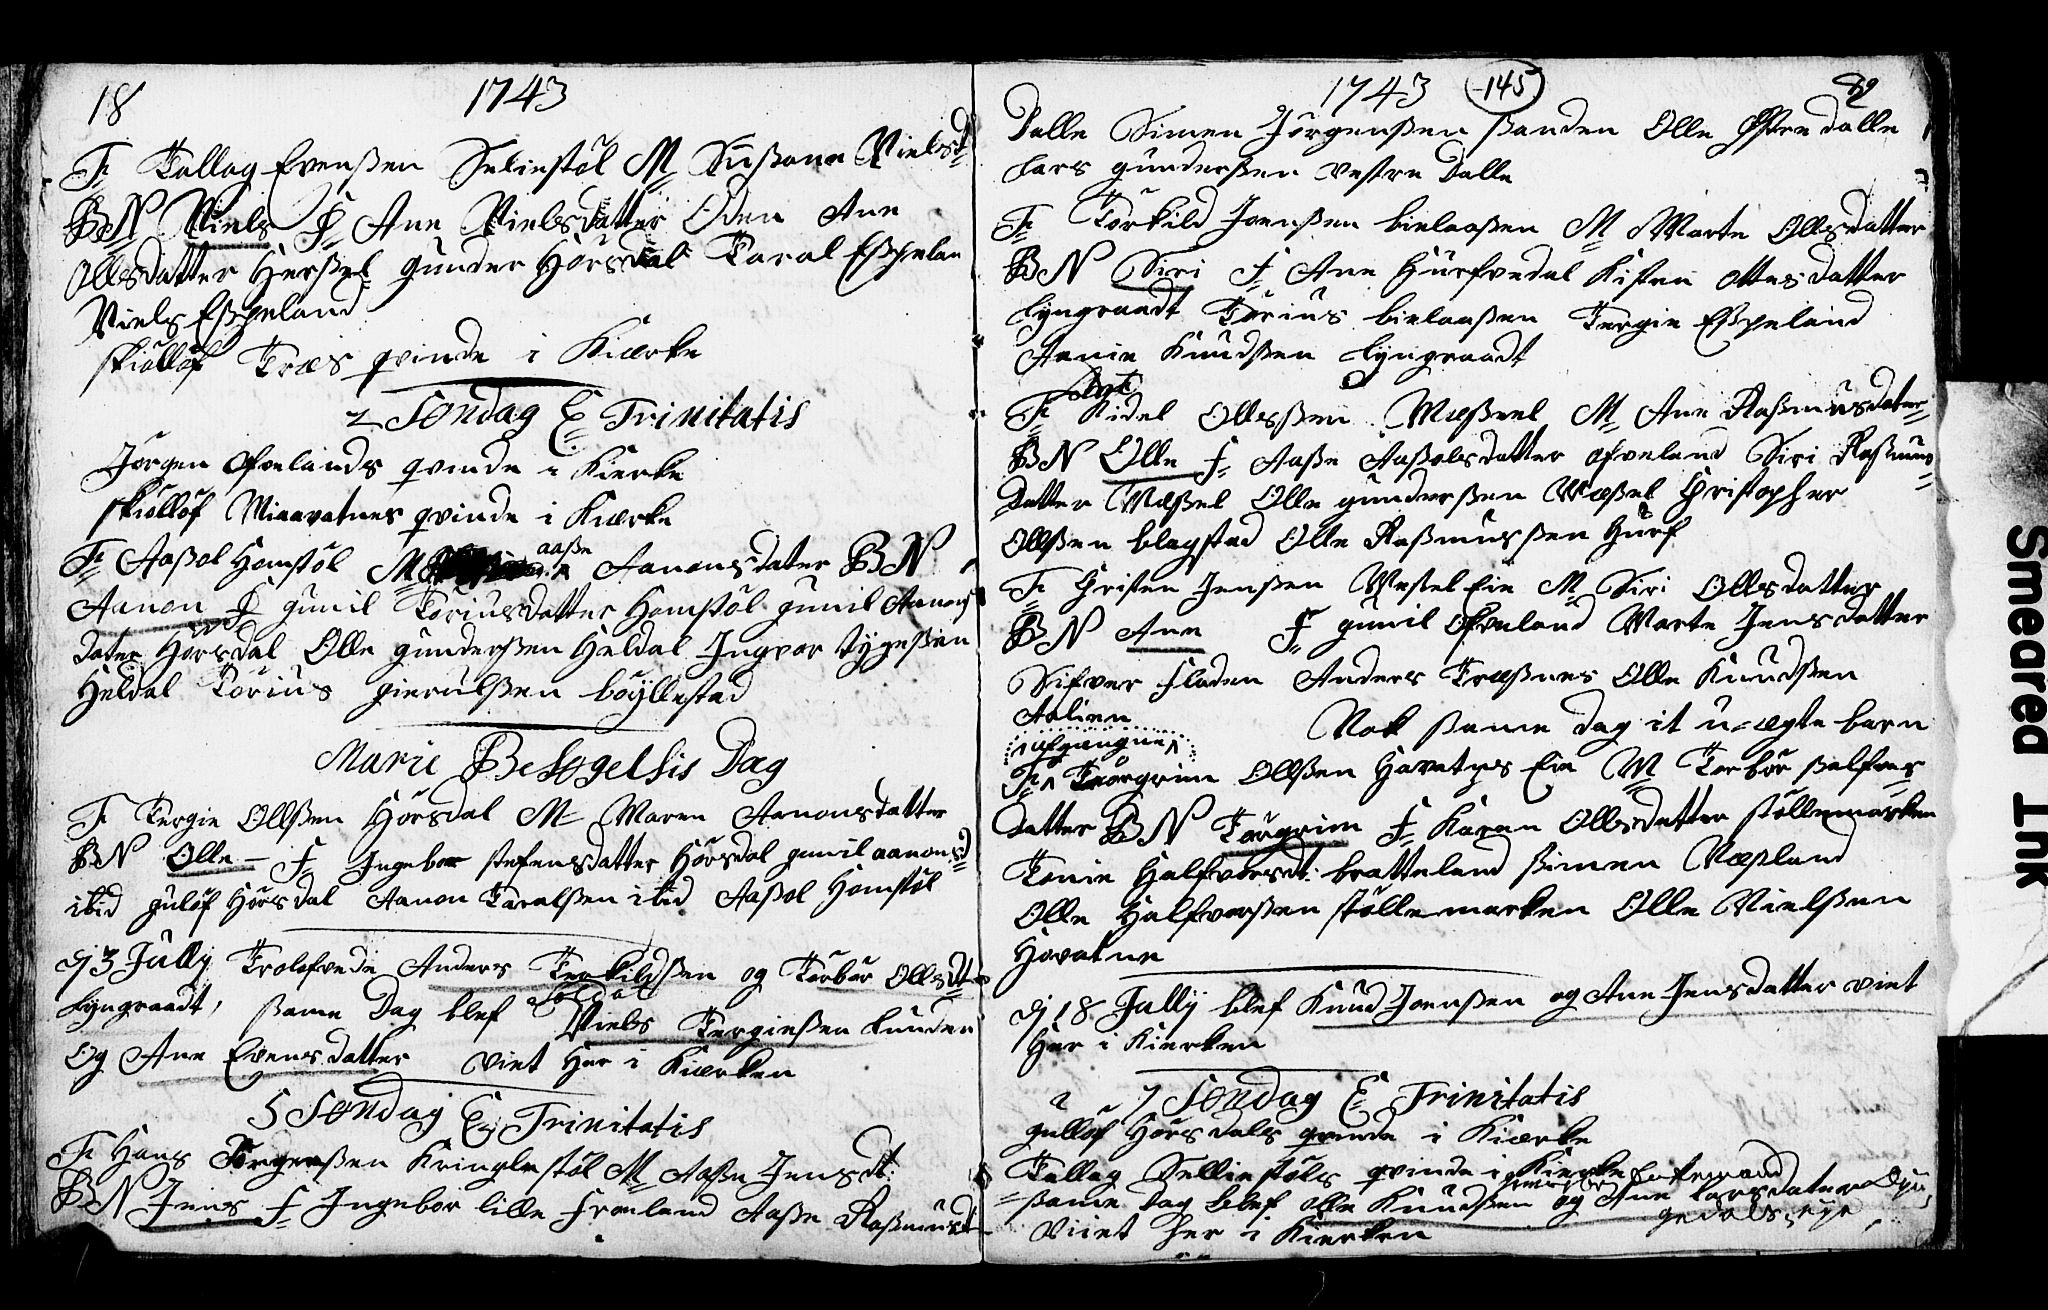 18 1743
F Tallag Evenßen Selinstøl M Sußane Nielsd
BN Niels F Ane Nielsdatter Oden Ane
Ollsdatter Herßel gunder Hörsdal Taral Eßpelan
Niels Eßpeland
skiølløf Træs qvinde i Kierke
2 Søndag E Trinitatis
Jørgen Ofvelands qvinde i Kierke
skiølløf Miaavatnes qvinde i Kierke
F Aaßol Homstøl M aaße Aanonsdater BN
Aanon F gunil Töriusdatter Homstøl gunil Aanons
dater Hörsdal Olle gunderßen Heldal Ingvor tygeßen
Heldal Törius gierulßen böyllestad
Marie Besøgelsis Dag
F Tergie Ollßen Hörsdal M Maren Aanonsdatter
BN Olle F Ingebor stefensdatter Hörsdal gunil aanonsd
ibid guløf Hörsdal Aanon Taralßen ibid Aaßol Homstøl
D 3 Jully Trolofvede Anders Terkildßen og Torbor Ollsdt
Lyngraadt, ßame Dag blef Soldat Niels Tergießen Lunden
Og Ane Evensdatter viet Her i Kierken
5 Søndag E Trinitatis
F Hans Jørgenßen Kringlestøl M Aaße Jensdt:
BN Jens F Ingebor lille Frøeland Aaße Raßmusdt
1743 145 82
Dalle Simen Jörgenßen ßanden Olle Østre dalle
Lars gunderßen vestre Dalle
F Törkild Joenßen bielaaßen M Marte Ollsdatter
BN Siri F Ane Hurfvedal Kisten Ottesdatter
Lyngraadt Törius bielaaßen Tergie Eßpeland
Annie Knudßen Lyngraadt
F Kidel Olleßen Meßvel M Ane Raßmusdater
BN Olle F Aaße Aaßolsdatter ofveland Siri Raßmus
Datter Meßel Olle gunderßen Meßel Christopher
Ollßen blagstad Olle Raßmusßen Hurf
F Christen Jenßen Messel Eie M Siri Ollsdatter
BN Ane F gunil Ofveland Marte Jensdatter
Sifver fladen Anders Træßnes Olle Knudßen
Aalien
Nok ßame Dag it u-ægte barn
afgangne
F Torgrim Ollßen Havatns Eie M Torbor Halfvors
datter BN Torgrim F Karen Ollsdatter støllemarken
Tonie Halfvorsdt: bratteland ßimen Neßland
Olle Halfvorßen støllemarken Olle Nielßen
Havatne
D 18 Jully blef Knud Joenßen og Ane Jensdatter viet
Her i Kierken
7 Søndag E Trinitatis
guløf Hörsdals qvinde i Kierke
Tallag Selliestøls qvinde i Kierke
ßame dag blef olle Knudßen og Ane Larsdater
gedalseye
Viiet her i Kierken
Smeared Ink